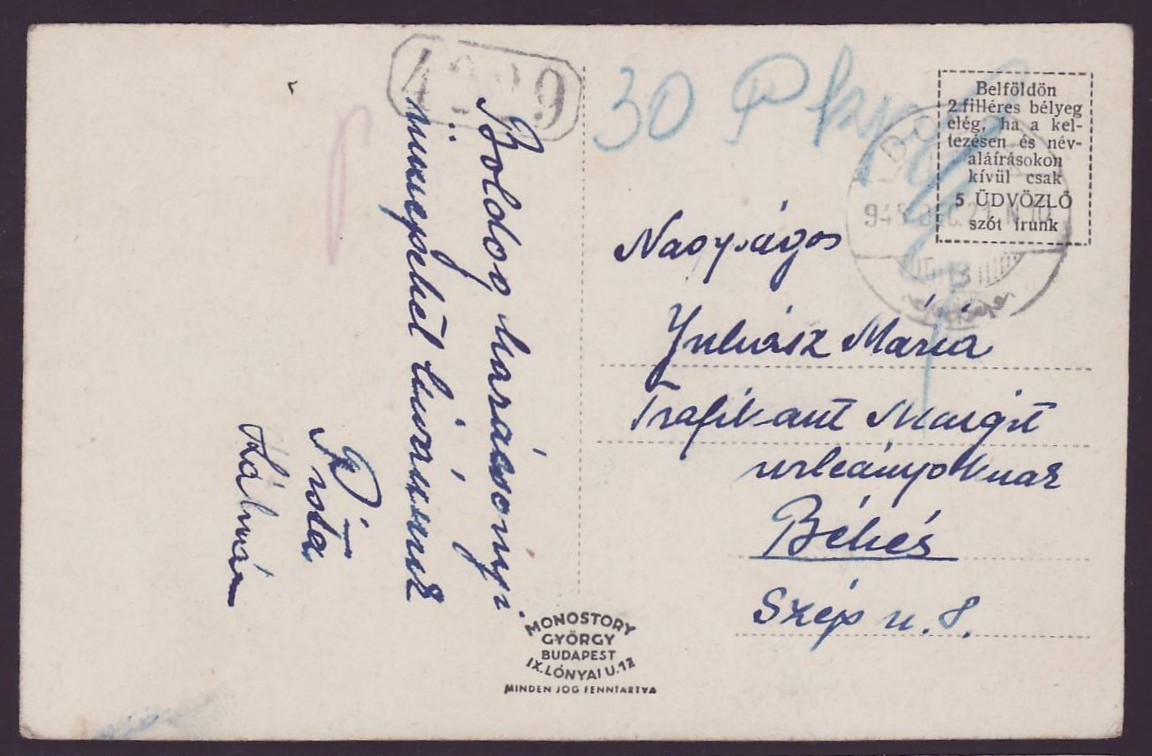 Boldog karácsonyi
ünnepeket kívánunk
Kálmán
30 P
Belföldön
2 filléres bélyeg
elég, ha a kel-
tezésen és név-
aláírásokon
kívül csak
5 ÜDVÖZLŐ
szót írunk
Nagyságos
Juhász Mária
Trafikant Margit
urleányoknak
Békés
Szép u. 8.
MONOSTORY
GYÖRGY
BUDAPEST
IX. LÓNYAI U. 12
MINDEN JOG FENNTARTVA